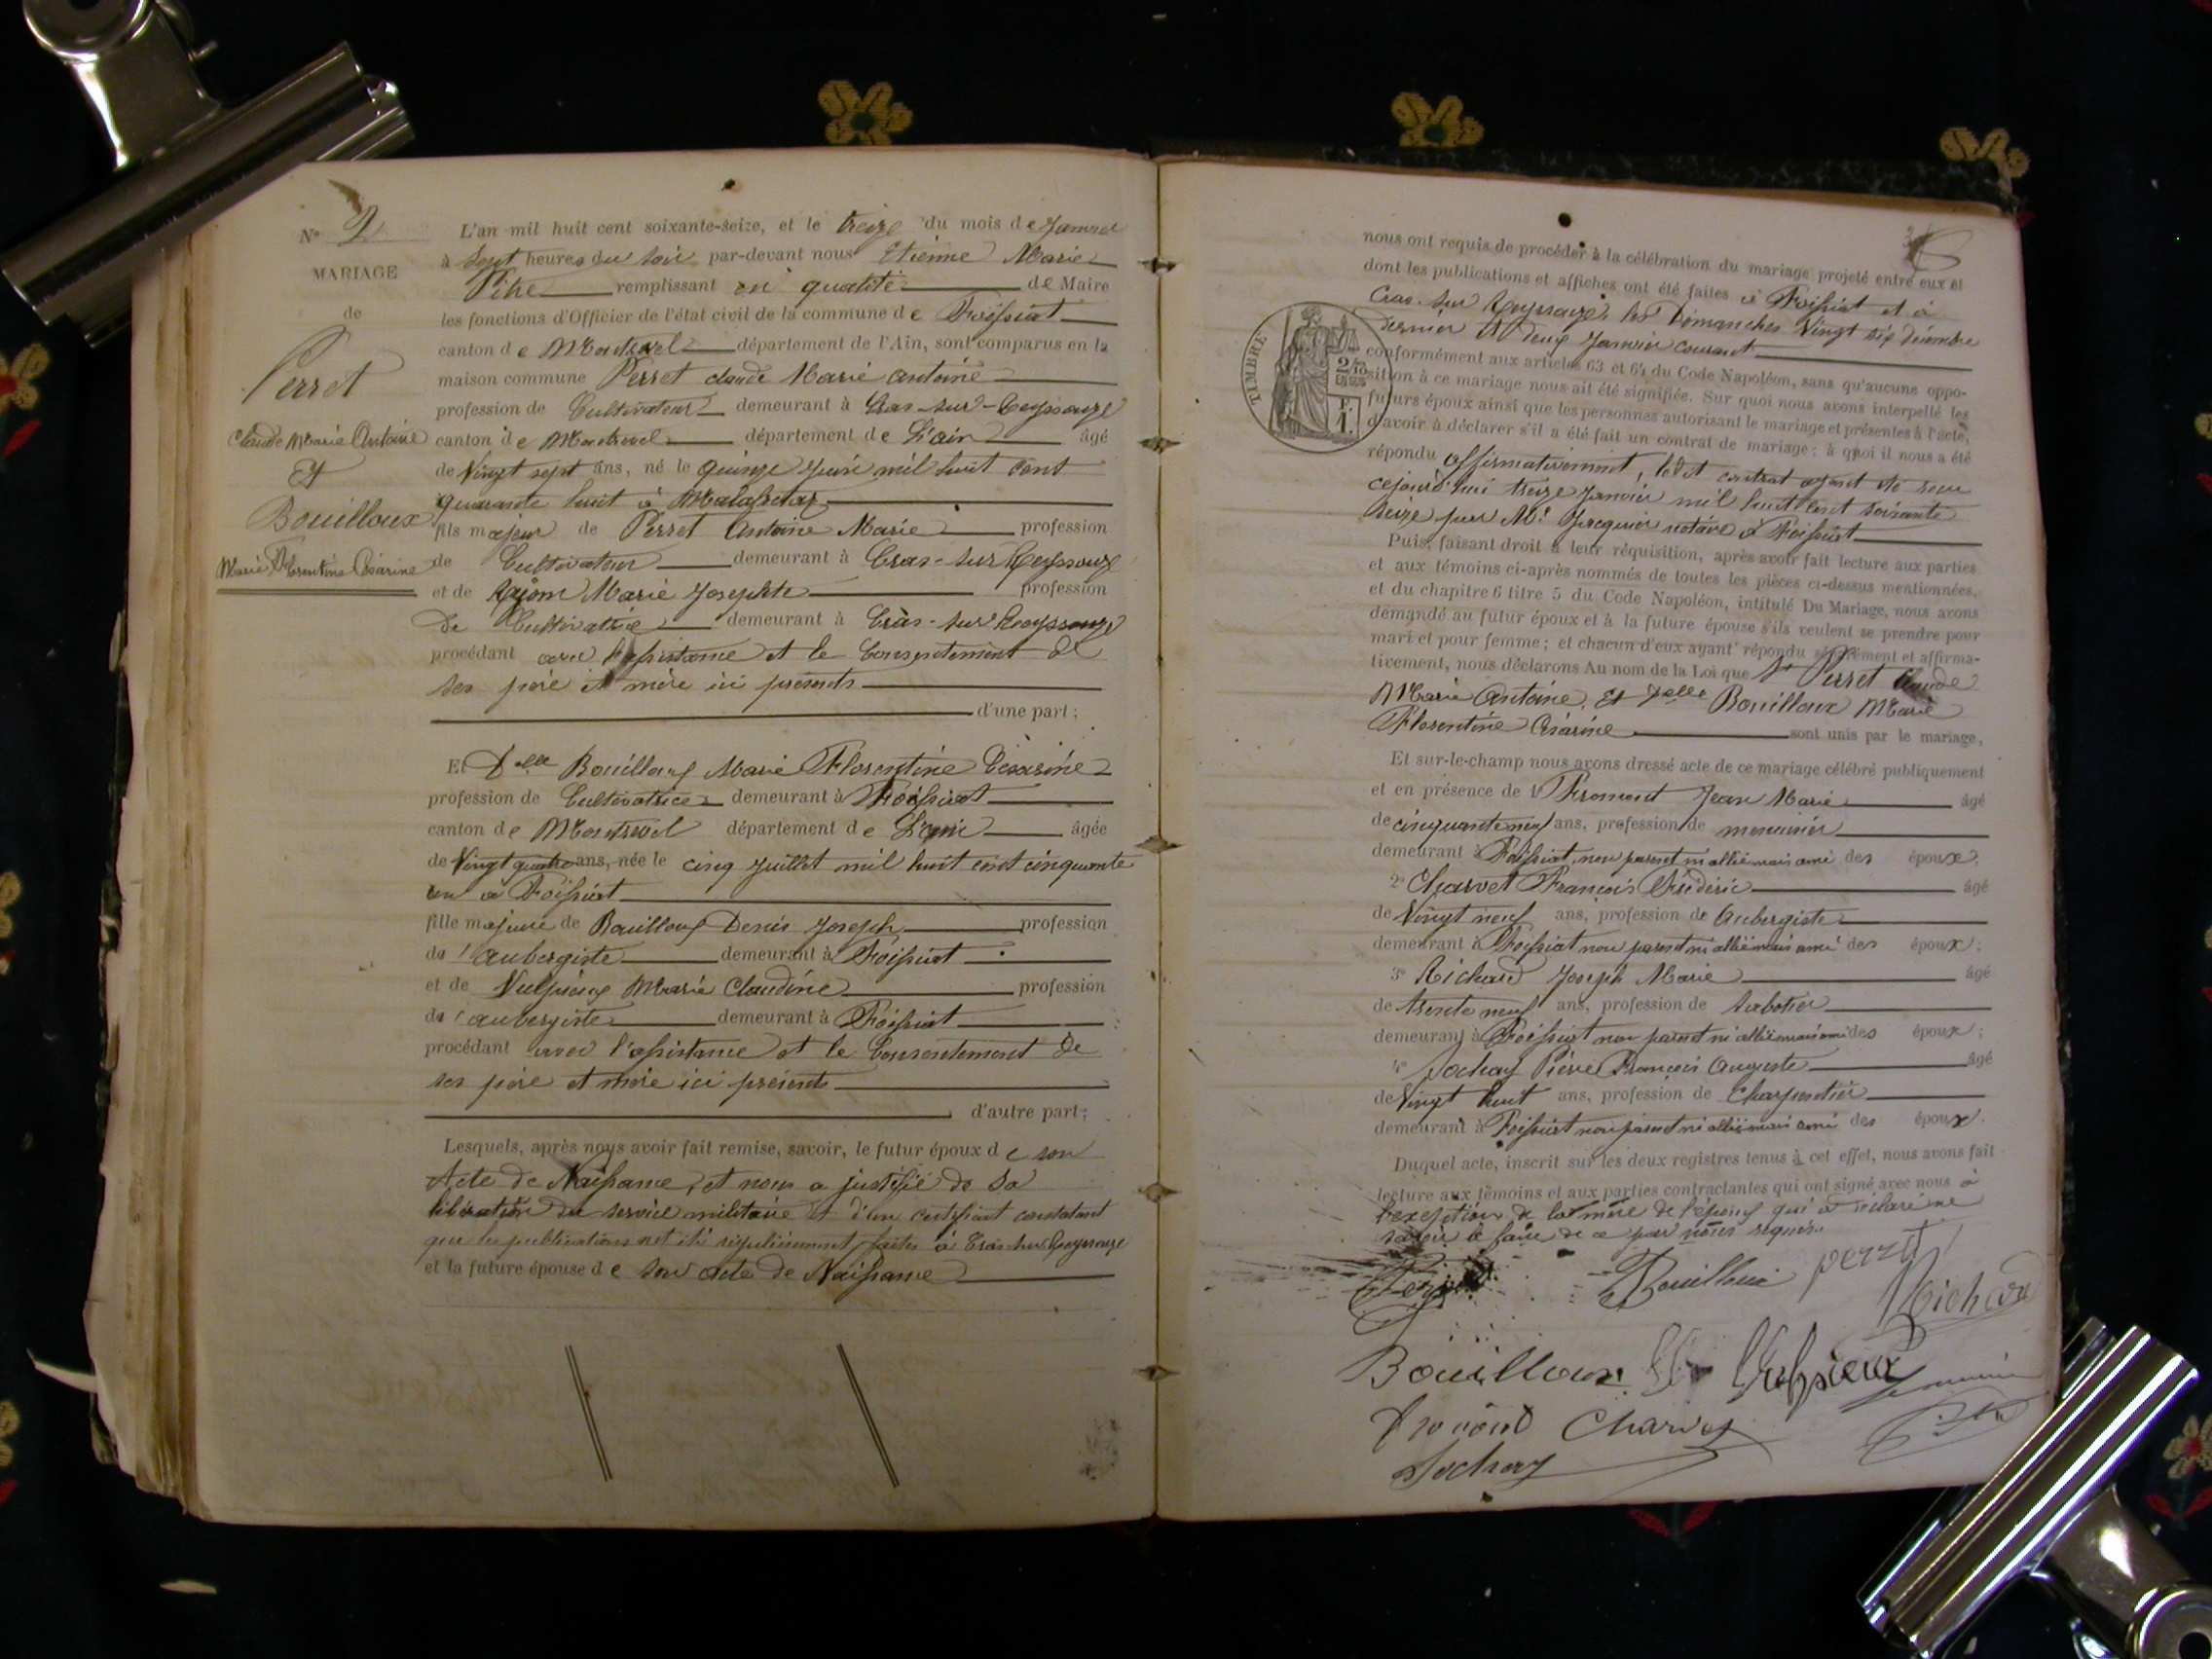 N° 2
MARIAGE
de
Perret
Claude Marie Antoine
Et
Bouilloux
Marie Florentine Césarine
L'an mil huit cent soixante-seize, et le treize du mois de Janvier
à Sept heures du soir par-devant nous Etienne Marie
Pihe remplissant en qualité de Maire
les fonctions d'Officier de l'état civil de la commune de Foissiat
canton de Montrevel département de l'Ain, sont comparus en la
maison commune Perret claude Marie antoine
profession de Cultivateur demeurant à Cras-sur-Reyssouze
canton de Montrevel département de L'ain âgé
de Vingt sept ans, né le quinze Juin mil huit cent
quarante huit à Malafretaz
fils majeur de Perret Antoine Marie profession
de Cultivateur demeurant à Cras-sur Reyssouze
et de Marie Josephte profession
De Cultivatrice demeurant à Cras-sur Reyssouze
procédant avec l'assistance et le Consentement de
ses père et mère ici présents
d'une part ;
Et Delle Bouilloux Marie Florentine Césarine
profession de Cultivatrice demeurant à Foissiat
canton de Montrevel département de L'ain âgée
de Vingt quatre ans, née le cinq Juillet mil huit cent cinquante
un à Foissiat
fille majeure de Bouilloux Denis Joseph profession
de aubergiste demeurant à Foissiat
et de Vulpieux Marie Claudine profession
de aubergiste demeurant à Foissiat
procédant avec l'assistance et le Consentement de
ses père et mère ici présents
d'autre part ;
Lesquels, après nous avoir fait remise, savoir, le futur époux de son
Acte de Naissance, et nous a justifié de sa
libération du service militaire et d'un certificat constatant
que les publications ont été régulièrement faites à Cras-sur Reyssouze
et la future épouse de son acte de Naissance
nous ont requis de procéder à la célébration du mariage projeté entre eux et
dont les publications et affiches ont été faites à Foissiat et à
Cras-sur Reyssouze, les Dimanches Vingt six décembre
dernier et deux Janvier courant
conformément aux articles 63 et 64 du Code Napoléon, sans qu'aucune oppo-
sition à ce mariage nous ait été signifiée. Sur quoi nous avons interpellé les
futurs époux ainsi que les personnes autorisant le mariage et présentes à l'acte,
d'avoir à déclarer s'il a été fait un contrat de mariage ; à quoi il nous a été
répondu affirmativement, ledit contrat ayant été reçu
cejourd'hui treize Janvier mil huit cent soixante
seize par Me Jacquier notaire à Foissiat
TIMBRE
Puis, faisant droit à leur réquisition, après avoir fait lecture aux parties
et aux témoins ci-après nommés de toutes les pièces ci-dessus mentionnées,
et du chapitre 6 titre 5 du Code Napoléon, intitulé Du Mariage, nous avons
demandé au futur époux et à la future épouse s'ils veulent se prendre pour
mari et pour femme ; et chacun d'eux ayant répondu séparément et affirma-
tivement, nous déclarons Au nom de la Loi que Sr Perret Claude
Marie Antoine, Et Delle Bouilloux Marie
Florentine Césarine sont unis par le mariage,
Et sur-le-champ nous avons dressé acte de ce mariage célébré publiquement
et en présence de 1° Fromont Jean Marie âgé
de cinquante neuf ans, profession de menuisier
demeurant à Foissiat non parent ni allié mais ami des époux ;
2° Charvet François Frédéric âgé
de Vingt neuf ans, profession de Aubergiste
demeurant à Foissiat non parent ni allié mais ami des époux ;
3° Richard Joseph Marie âgé
de trente neuf ans, profession de Sabotier
demeurant à Foissiat non parent ni allié mais ami des époux ;
4° Sochay Pierre François Auguste âgé
de Vingt huit ans, profession de Charpentier
demeurant à Foissiat non parent ni allié mais ami des époux.
Duquel acte, inscrit sur les deux registres tenus à cet effet, nous avons fait
lecture aux témoins et aux parties contractantes qui ont signé avec nous à
l'exception de la mère de l'époux qui a déclaré ne
savoir le faire de ce par nous requise.
Bouilloux perret
Richard
Bouilloux Vulpieux
Fromont Charvet
Sochay